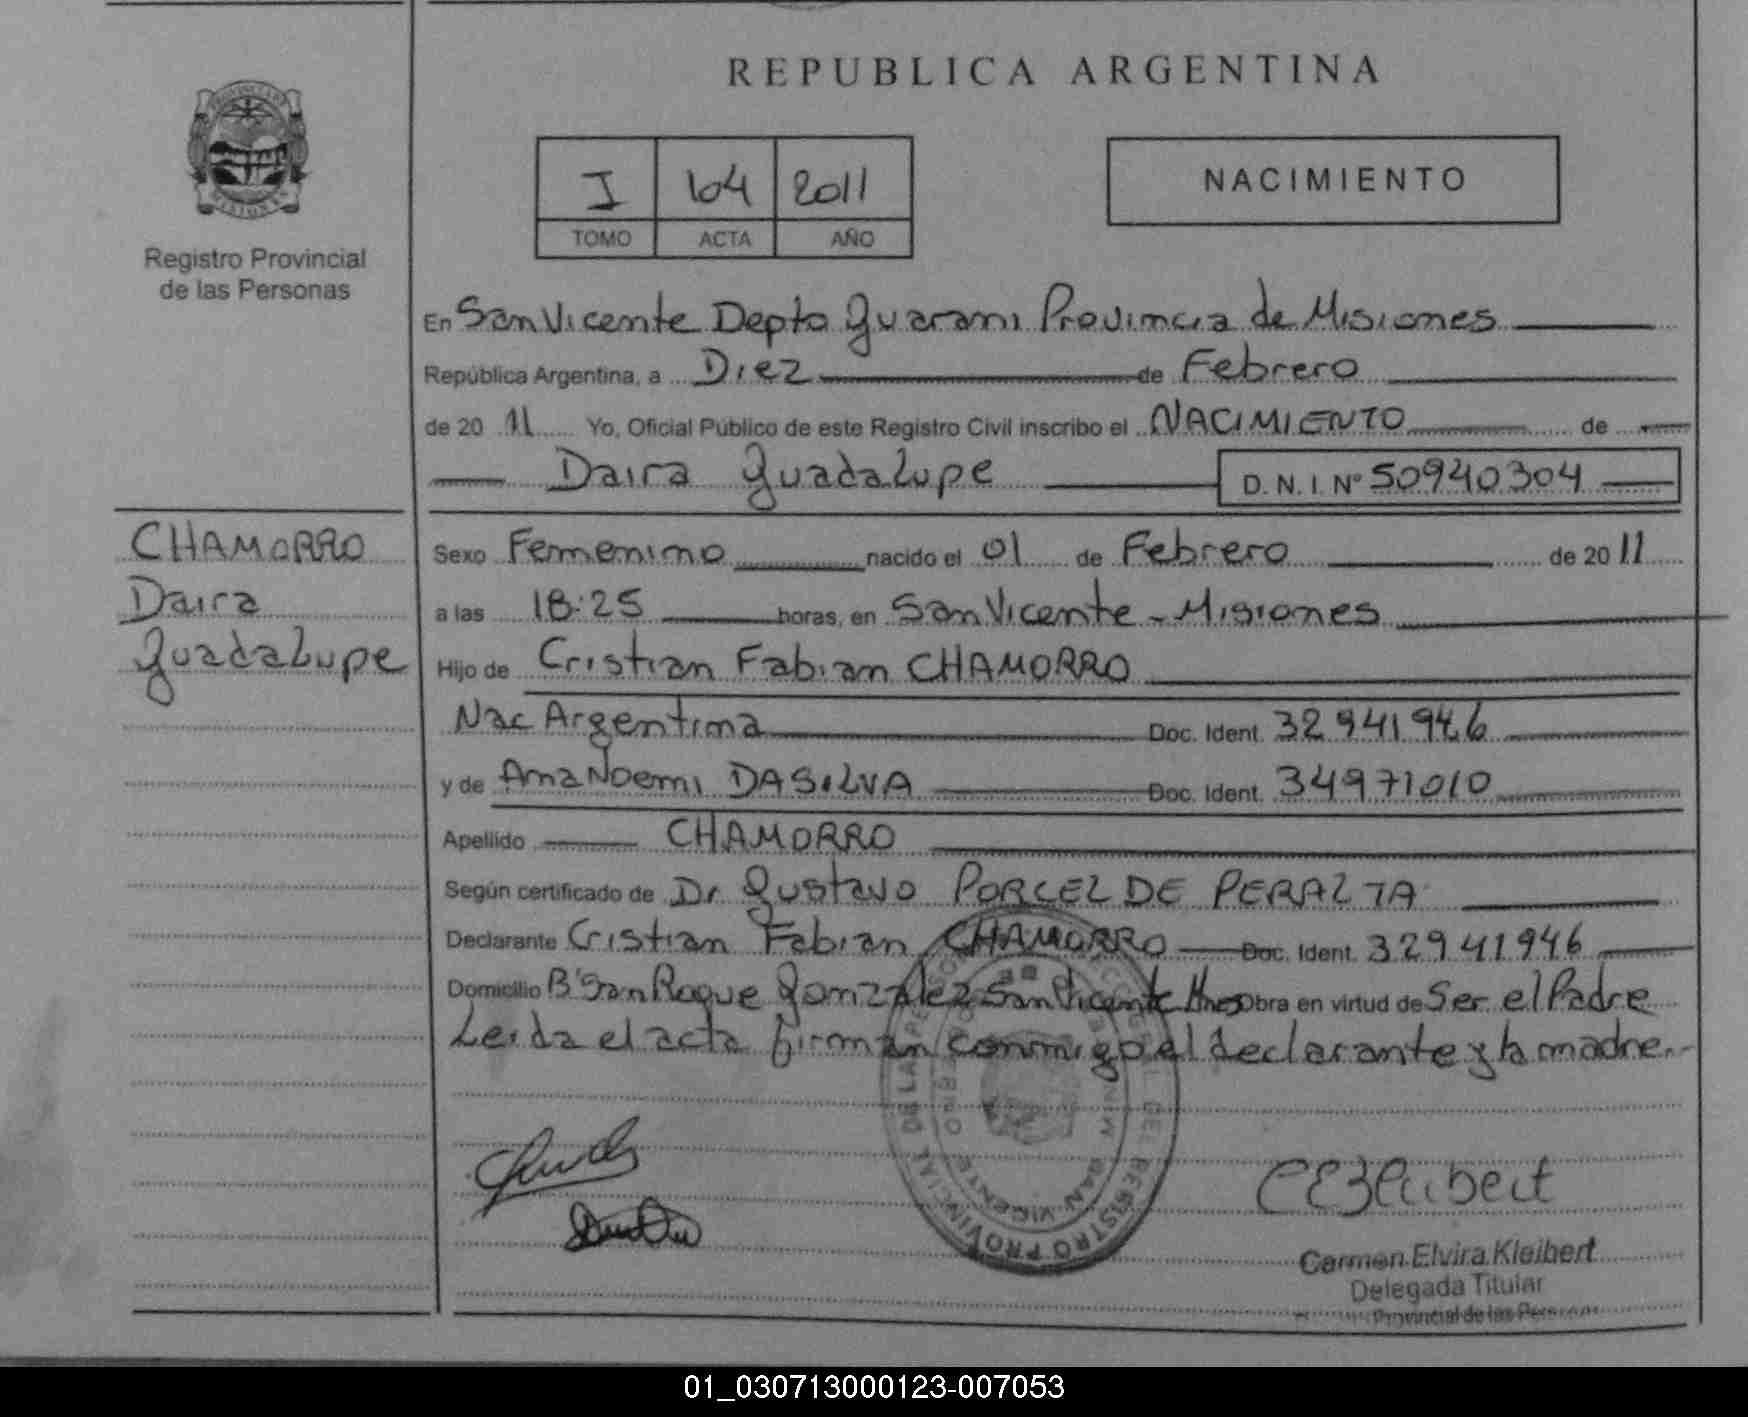 REPUBLICA ARGENTINA
PROVINCIA DE
MISIONES
Registro Provincial
de las Personas
I 104 2011
TOMO ACTA AÑO
NACIMIENTO
En San Vicente Depto Guarani Provincia de Misiones
República Argentina, a Diez de Febrero
de 20 11 Yo, Oficial Público de este Registro Civil inscribo el NACIMIENTO de
Daira Guadalupe D.N.I. Nº 50940304
CHAMORRO
Daira
Guadalupe
Sexo Femenino nacido el 01 de Febrero de 20 11
a las 18:25 horas, en San Vicente - Misiones
Hijo de Cristian Fabian CHAMORRO
Nac Argentina Doc. Ident. 32941946
y de Ana Noemi DASILVA Doc. Ident. 34971010
Apellido CHAMORRO
Según certificado de Dr Gustavo PORCEL DE PERALTA
Declarante Cristian Fabian CHAMORRO Doc. Ident. 32941946
Domicilio Bº San Roque Gonzalez San Vicente Mnes Obra en virtud de Ser el Padre
Leida el acta firman conmigo el declarante y la madre.-
REGISTRO PROVINCIAL DE LAS PERSONAS
SAN VICENTE
CEKleibert
Carmen Elvira Kleibert
Delegada Titular
Provincial de las Personas
01_030713000123-007053